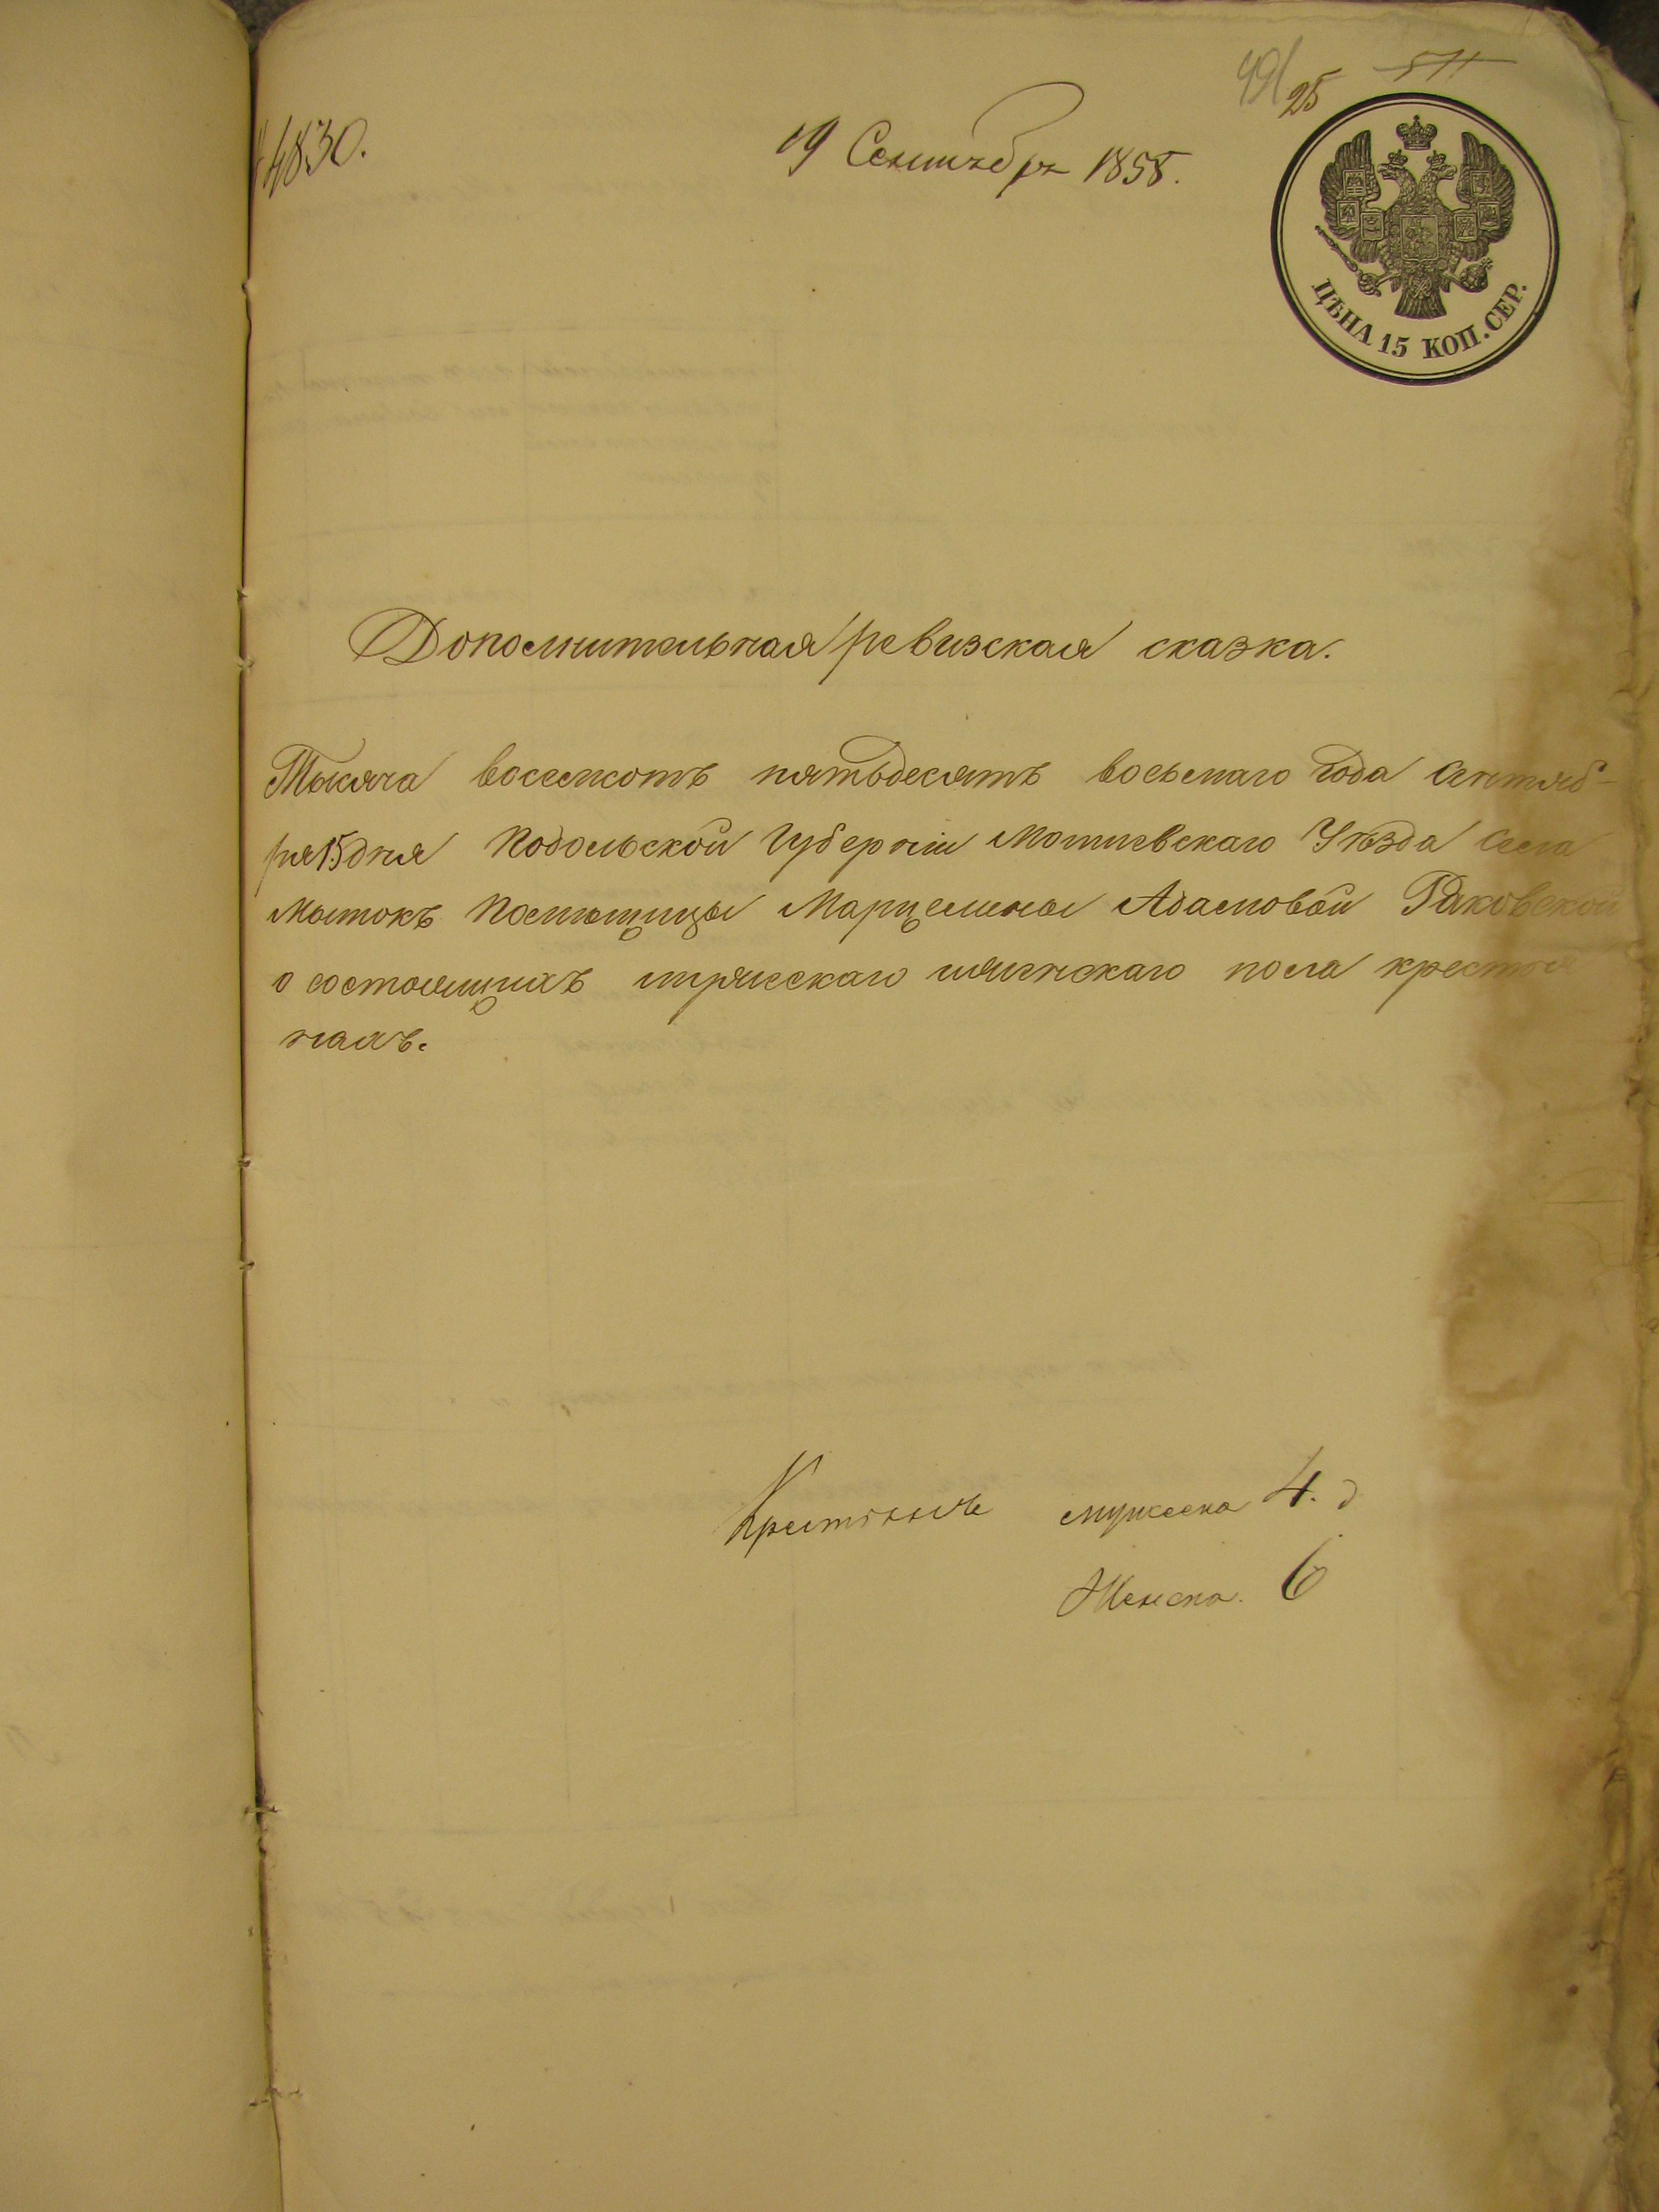 491 25 511
№ 4830.
19 Сентября 1858.
ЦѢНА 15 КОП. СЕР.
Дополнительная ревизская сказка.
Тысяча восемсотъ пятьдесятъ восьмаго года Сентяб-
ря 15 дня Подольской Губерніи Могилевскаго Уѣзда Села
Мытокъ Помѣщицы Марцелины Адамовой Раковской
о состоящихъ мужескаго женскаго пола крестья
нахъ.
Крестьянъ мужеска 4. д
Женска. 6